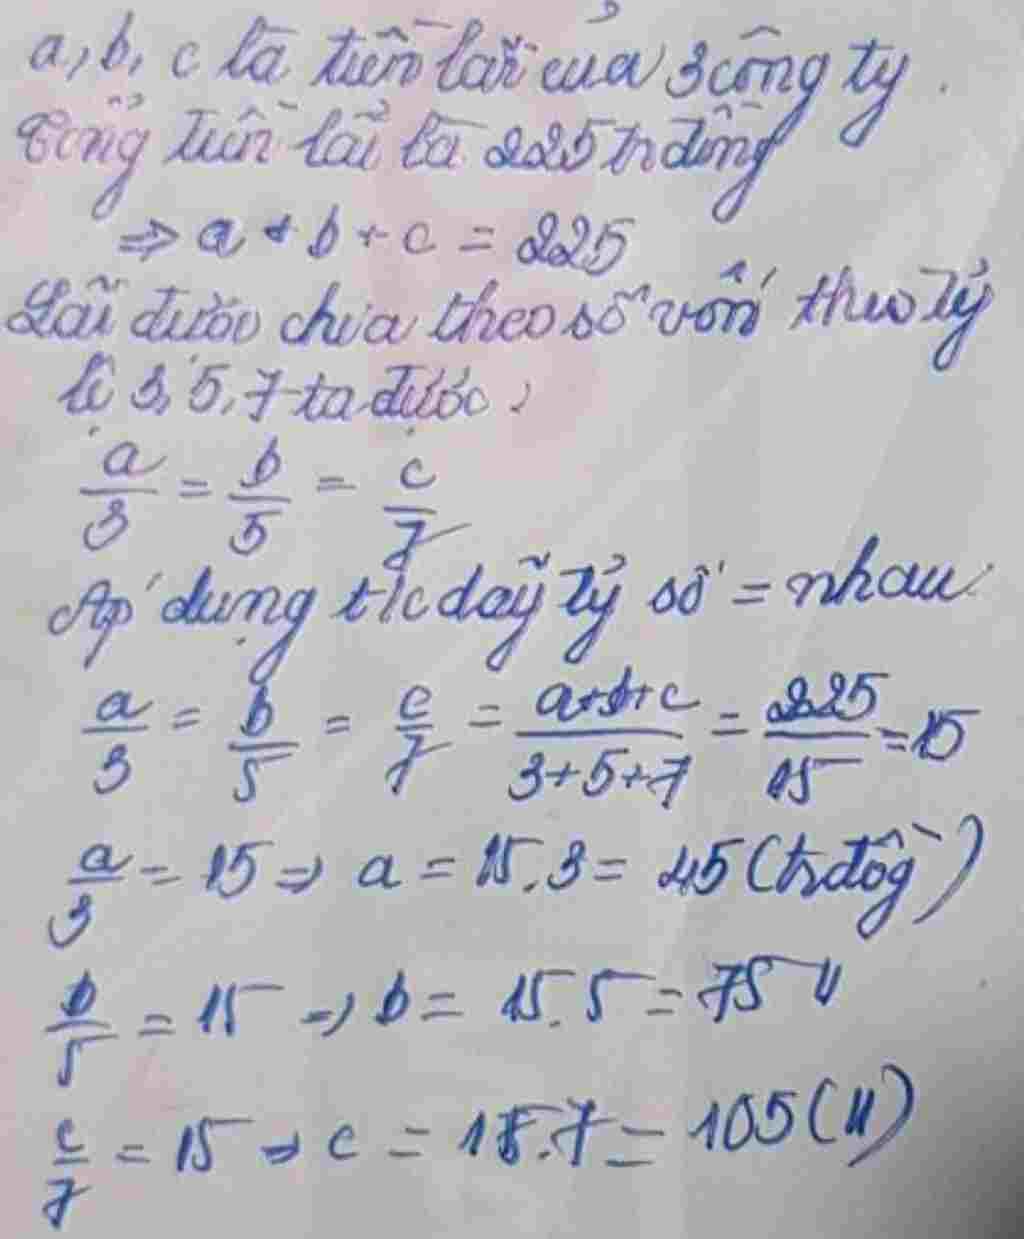 a, b, c là tiền lãi của 3 công ty.
Tổng tiền lãi là 225 tr đồng
=> a + b + c = 225
Lãi được chia theo số vốn theo tỷ
lệ 3, 5, 7 ta được:
a/3 = b/5 = c/7
Áp dụng t/c dãy tỷ số = nhau
a/3 = b/5 = c/7 = a+b+c/3+5+7 = 225/15 = 15
a/3 = 15 => a = 15.3 = 45 (tr đồg)
b/5 = 15 => b = 15.5 = 75 "
c/7 = 15 => c = 15.7 = 105 (")